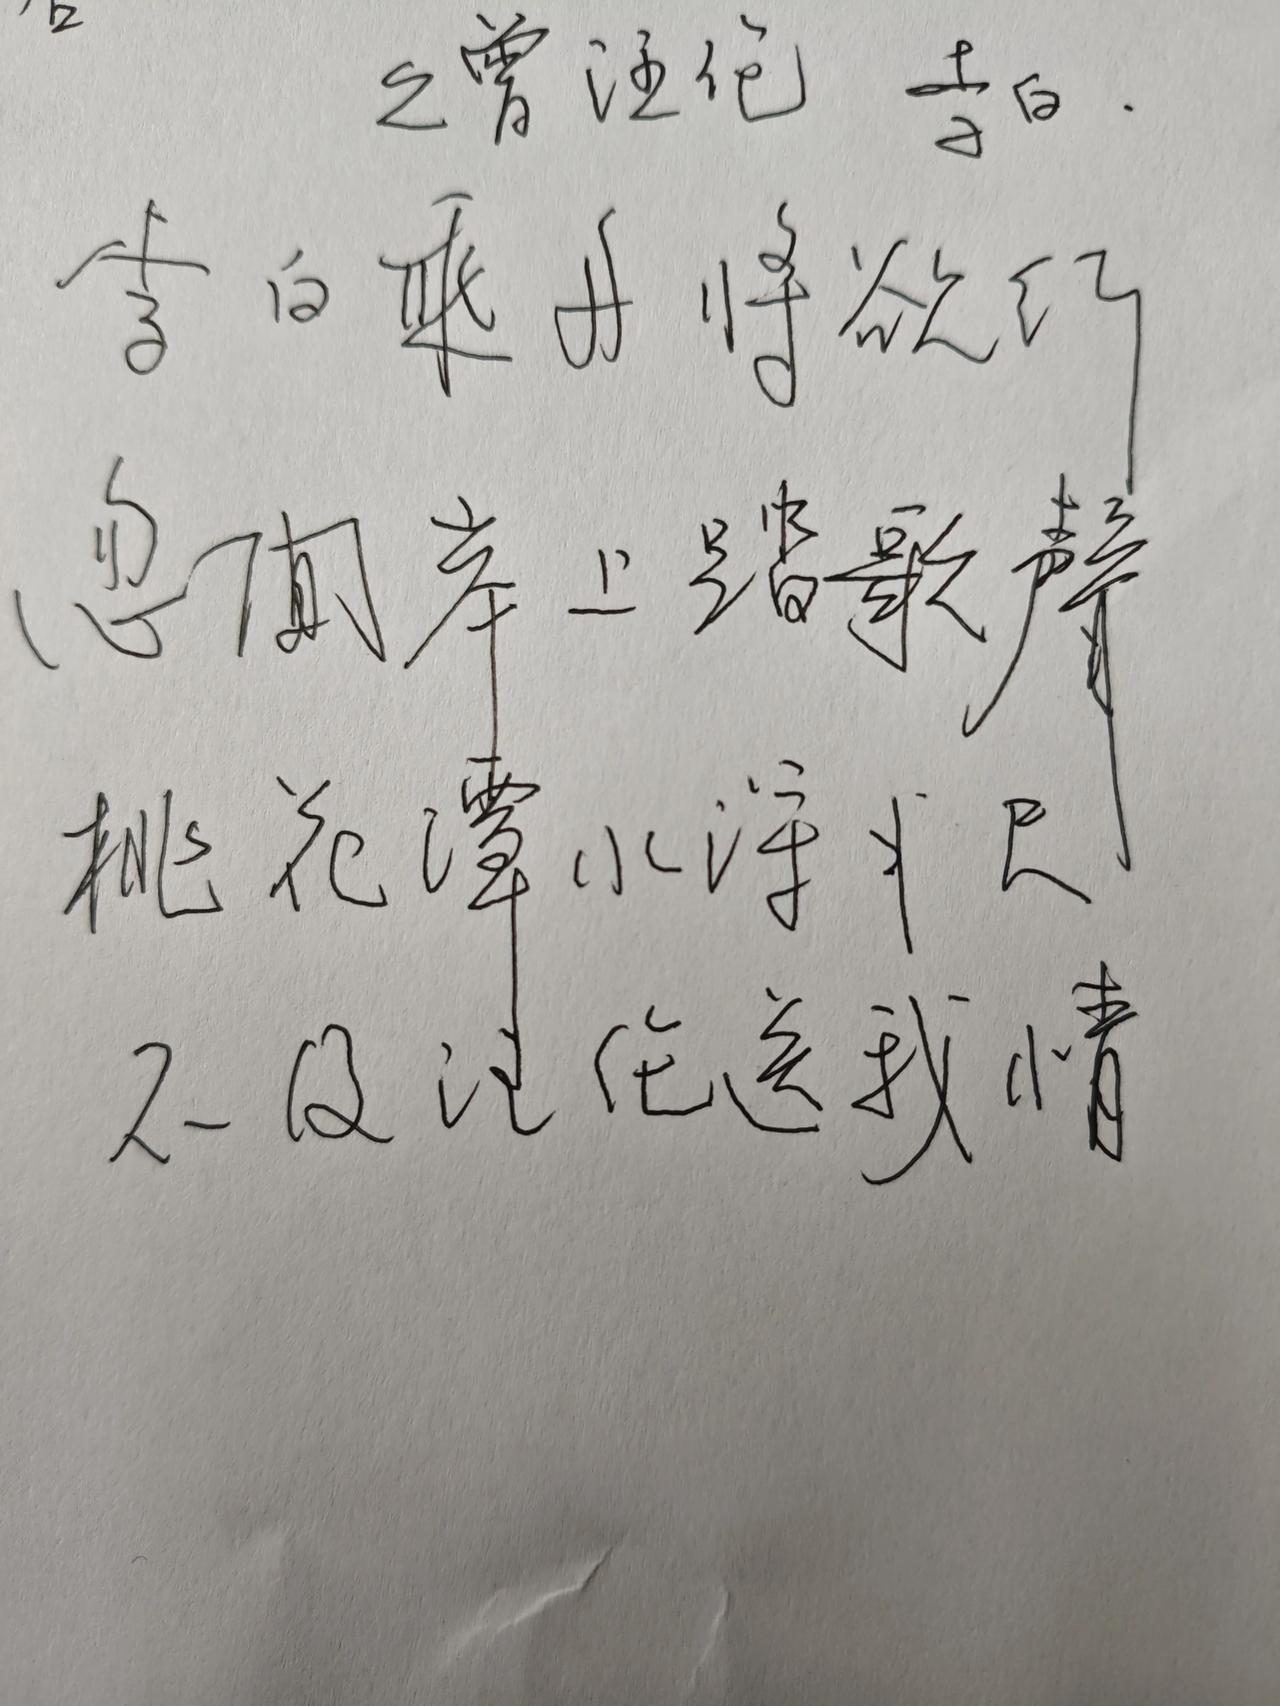 曾汪伦 李白.
李白乘舟将欲行
忽闻岸上踏歌聲
桃花潭水深千尺
不及汪伦送我情